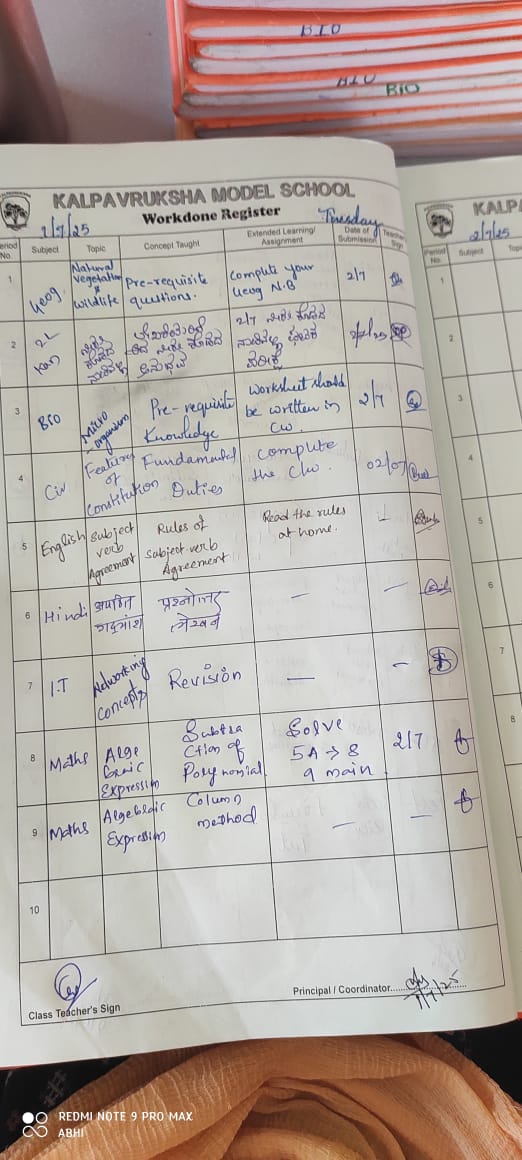 BIO
BIO
BIO
KALPAVRUKSHA MODEL SCHOOL
Workdone Register
1/7/25
Tuesday
Period No.
Subject
Topic
Concept Taught
Extended Learning/ Assignment
Date of Submission
Teacher Sign
1
Geog.
Natural vegetation & wildlife
Pre-requisite questions.
Complete your Geog N.B
2/7
2
2L Kan
2/7
3
BIO
Micro organisms
Pre-requisite Knowledge
Worksheet should be written in CW.
2/7
4
Civ
Features of Constitution
Fundamental Duties
Complete the CW.
02/07
5
English
Subject verb Agreement
Rules of Subject verb Agreement
Read the rules at home.
6
Hindi
अपठित गद्यांश
लेखन
—
—
7
I.T
Networking Concepts
Revision
—
—
8
Maths
Algebraic Expression
Subtraction of Polynomial
Solve 5A → 8 9 main
2/7
9
Maths
Algebraic Expression
Column method
—
—
10
Class Teacher's Sign
Principal / Coordinator
1/7/25
KALPA
2/7/25
Period No.
Subject
1
2
3
4
5
6
7
8
REDMI NOTE 9 PRO MAX
ABHI